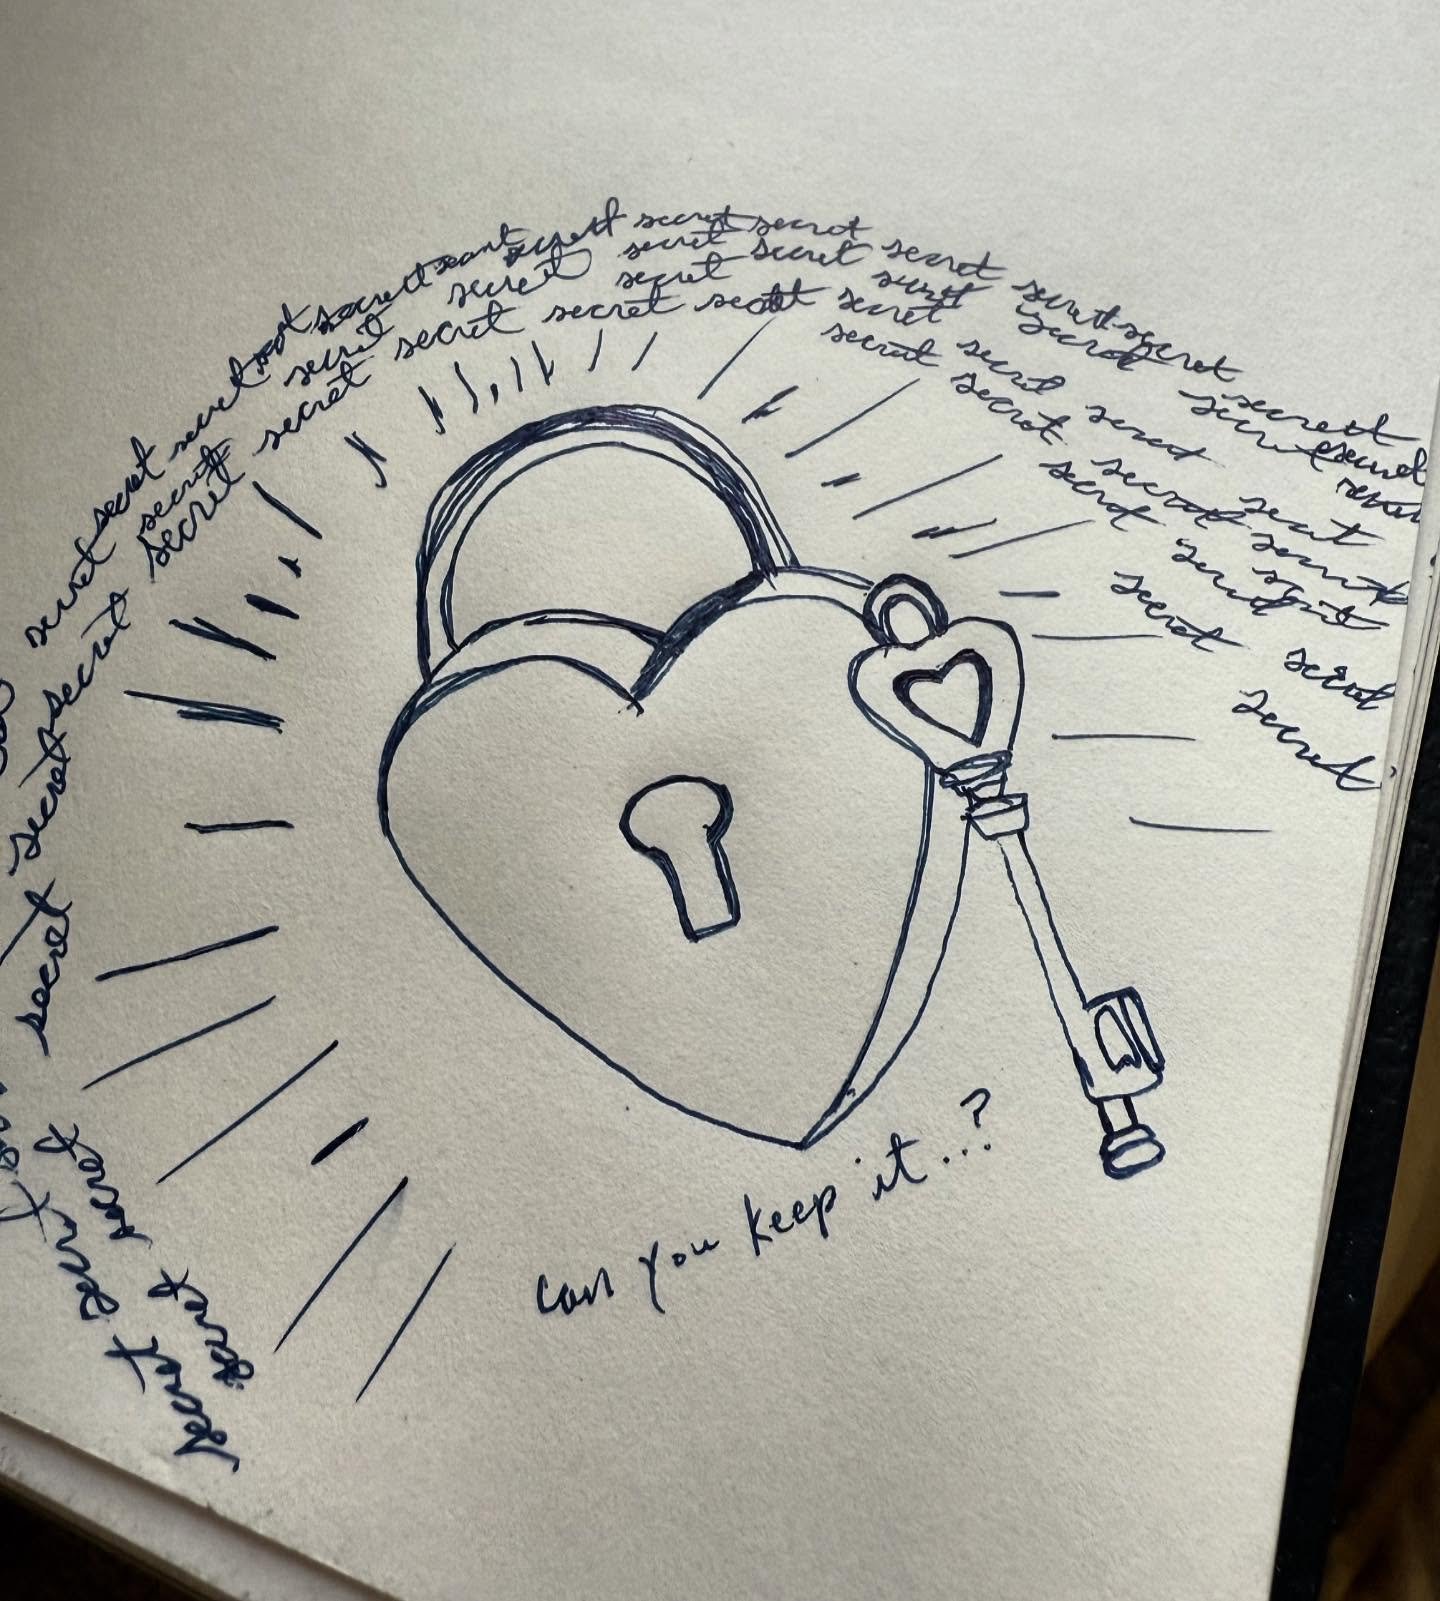 secret secret secret secret secret secret secret secret secret secret secret secret
secret secret secret secret secret secret secret secret secret
secret secret secret secret secret secret secret secret secret
secret secret secret secret secret secret secret
secret secret secret secret secret
secret secret secret secret
secret secret
secret
secret
secret
secret
secret secret
secret secret
can you keep it...?